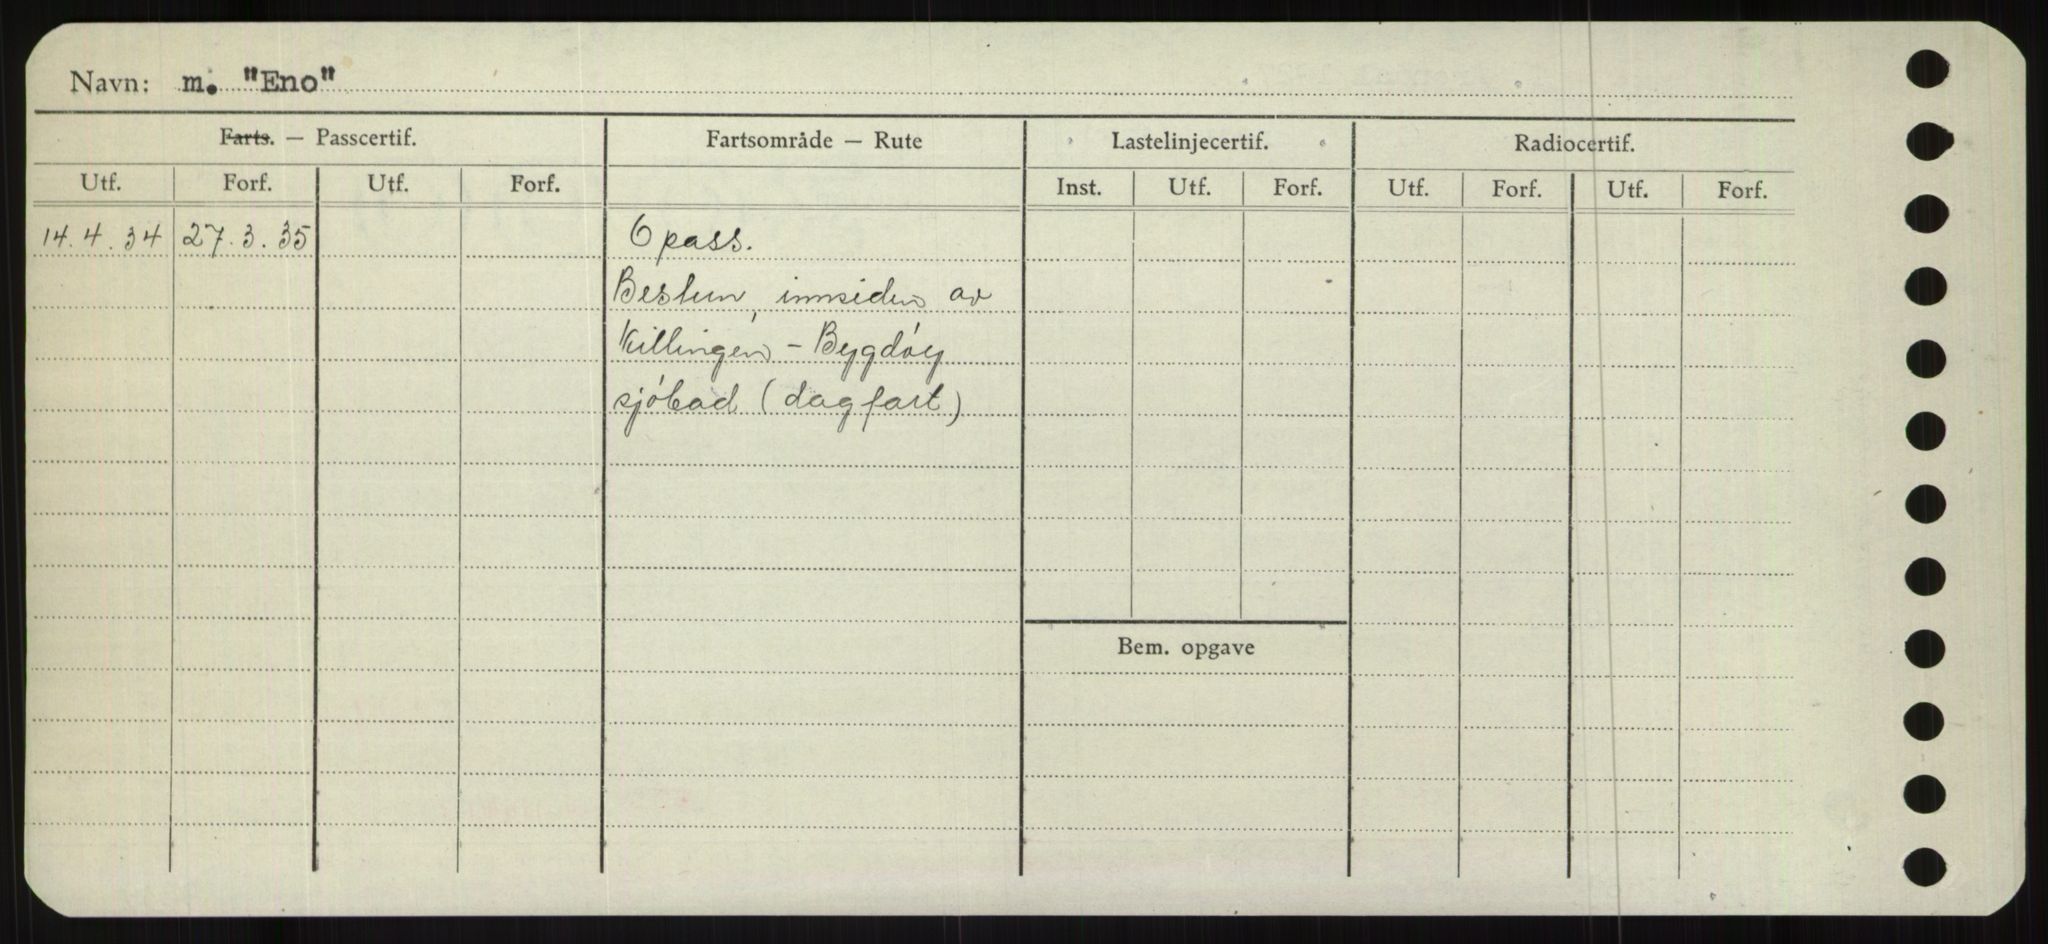 Navn: m. "Eno"
Farts. — Passcertif. Fartsområde — Rute Lastelinjecertif. Radiocertif.
Utf. Forf. Utf. Forf. Inst. Utf. Forf. Utf. Forf. Utf. Forf.
14.4.34 27.3.35 6 pass.
Bestun, innsiden av
Killingen - Bygdøy
sjøbad (dagfart)
Bem. opgave